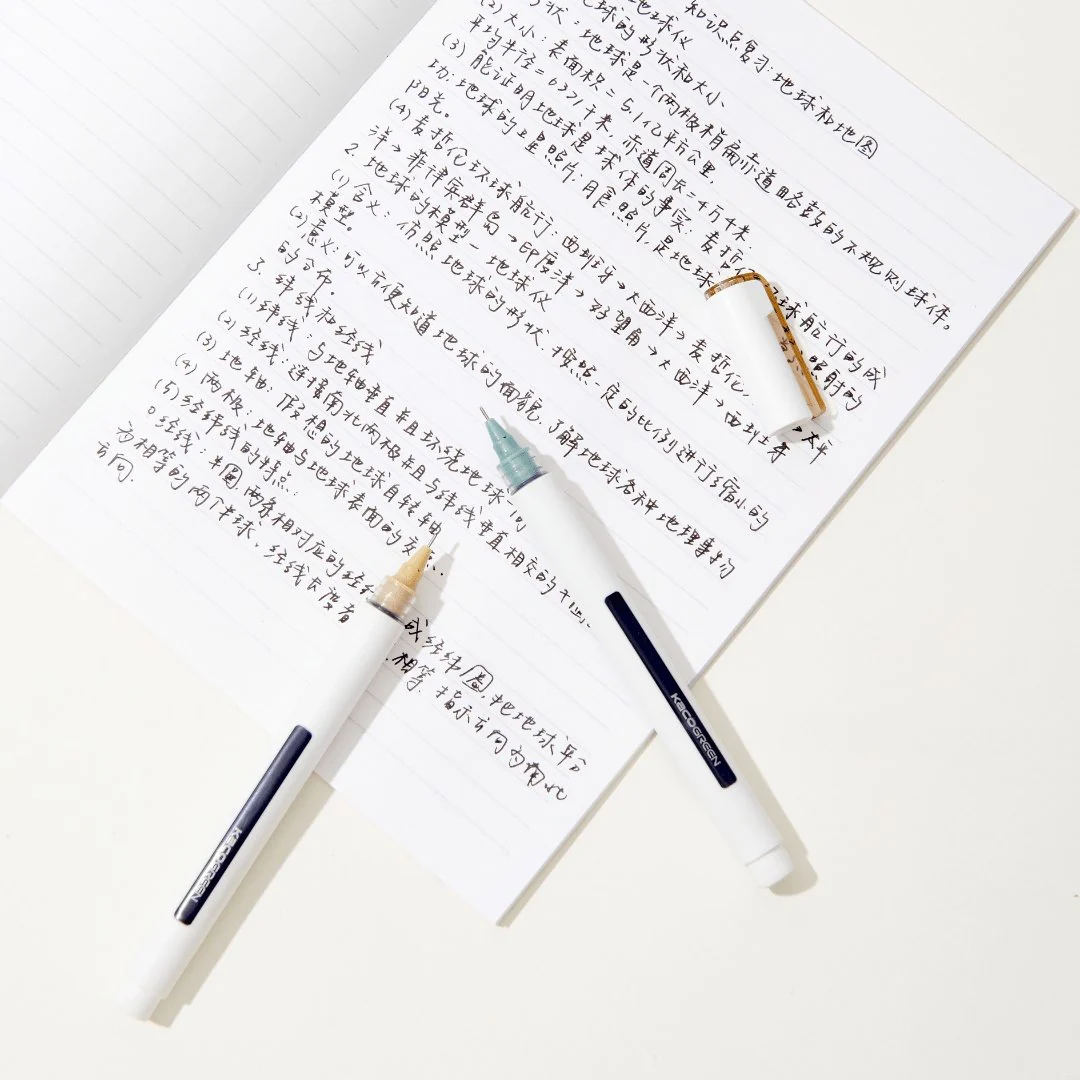 知识点复习:地球和地图
地球仪
球的形状和大小
状:地球是一个两极稍扁赤道略鼓的不规则球体。
(2)大小:表面积=5.1亿平方公里,
平均半径=6371千米,赤道周长=4万千米
(3)能证明地球是球体的事实:麦哲伦 球航行的成
功;地球的卫星照片;月食照片,是地球 照射的
阳光。
(4)麦哲伦环球航行:西班牙→大西洋→麦哲伦 →太平
洋→菲律宾群岛→印度洋→好望角→大西洋→西班牙
2.地球的模型—地球仪
(1)含义:仿照地球的形状,按照一定的比例进行缩小的
模型。
(2)意义:可以方便知道地球的面貌,了解地球各种地理事物
的分布.
3.纬线和经线
(1)纬线:与地轴垂直并且环绕地球一
(2)经线:连接南北两极并且与纬线垂直相交的
(3)地轴:假想的地球自转轴
(4)两极:地轴与地球表面的交
(5)经纬线的特点:
。经线:半圆 两条相对应的经 成经纬圈,把地球平分
为相等的两个半球.经线长度者 相等.指示方向为南北
方向.
KACOGREEN
KACOGREEN